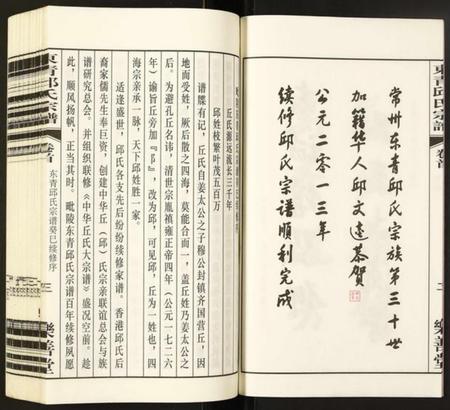 東青邱氏宗譜
卷首
二
樂善堂
常州东青邱氏宗族第三十世
加籍华人邱文達恭贺
公元二零一三年
续修邱氏宗谱顺利完成
丘氏源远流长三千年
邱姓枝繁叶茂五百万
谱牒有记,丘氏自姜太公之子穆公封镇齐国营丘,因
地而受姓,厥后散之四海,莫能合而一,盖丘姓乃姜太公之
后。为避孔丘名讳,清世宗胤禛雍正帝四年(公元一七二六
年)谕旨丘旁加『阝』,改为邱,可见邱,丘为一姓也,四
海宗亲承一脉,天下丘邱姓胜一家。
适逢盛世,邱氏各支先后纷纷续修家谱。香港邱氏后
裔家儒先生奉巨资,创建中华丘(邱)氏宗亲联谊总会与族
谱研究总会。并组织联修《中华丘氏大宗谱》盛况空前。趁
此,顺风扬帆,正当其时。毗陵东青邱氏宗谱百年续修夙愿
東青邱氏宗譜
卷首
东青邱氏宗谱癸巳续修序
三
樂善堂